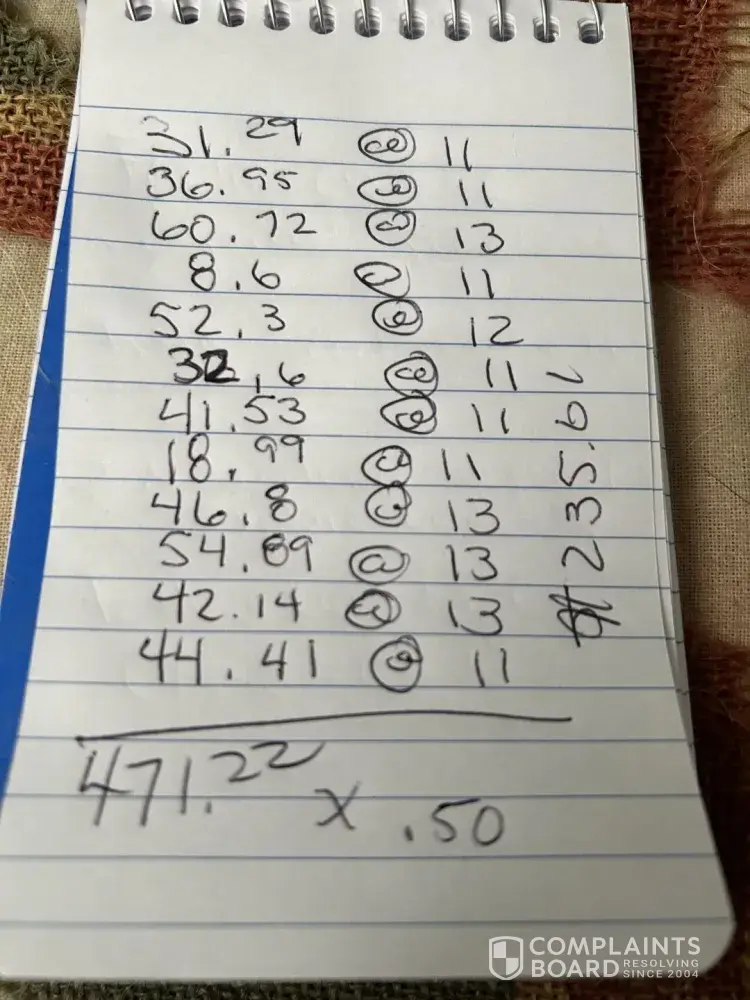 31.29 @ 11
36.95 @ 11
60.72 @ 13
8.6 @ 11
52.3 @ 12
32.6 @ 11
41.53 @ 11
18.99 @ 11
46.8 @ 13
54.89 @ 13
42.14 @ 13
44.41 @ 11
$235.61
471.22 x .50
COMPLAINTS
BOARD RESOLVING SINCE 2004